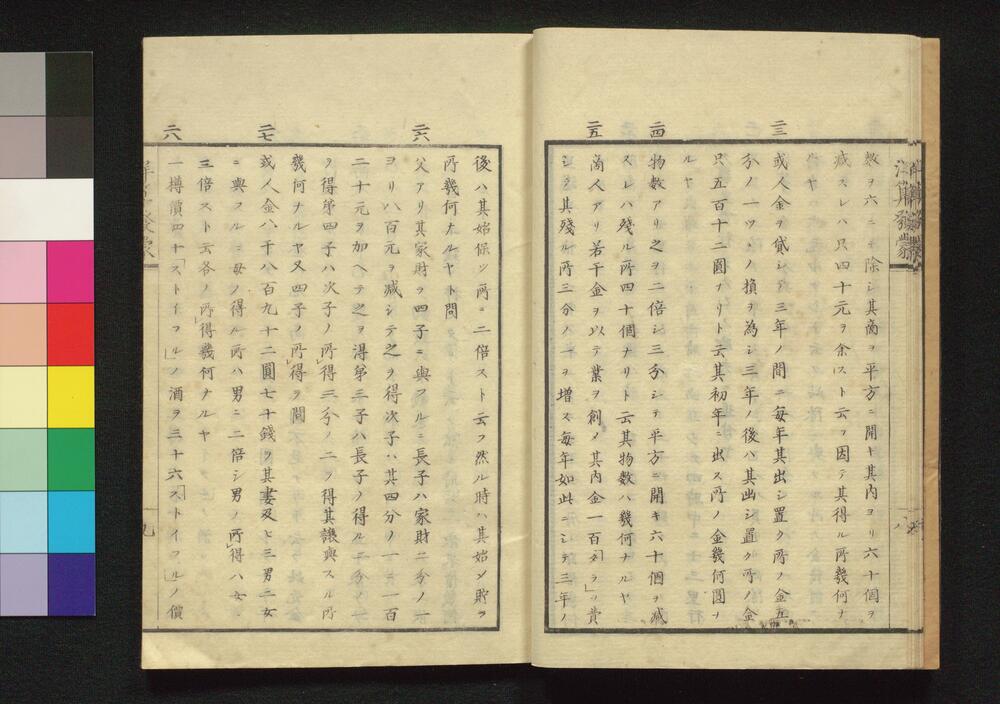 数ヲ六ニテ除シ其商ヲ平方ニ開キ其内ヨリ六十個ヲ
減スレハ只四十元ヲ余スト云フ因テ其得ル所幾何ナ
ルヤ
二三
或人金ヲ貸シ三年ノ間ニ毎年其出シ置ク所ノ金五
分ノ一ツヽノ損ヲ為シ三年ノ後ハ其出シ置ク所ノ金
只五百十二圓ナリト云其初年ニ出ス所ノ金幾何圓ナ
ルヤ
二四
物数アリ之ヲ二倍シ三分シテ平方ニ開キ六十個ヲ減
スレハ残ル所四十個ナリト云其物数ハ幾何ナルヤ
二五
商人アリ若干金ヲ以テ業ヲ創メ其内金一百「ドラ」ヲ費
シ其残ル所三分ノ一ヲ増ス毎年如此シテ三年ノ
後ハ其始保ツ所ニ二倍スト云フ然ル時ハ其始メ貯フ
所幾何ナルヤト問
二六
父アリ其家財ヲ四子ニ與フルニ長子ハ家財二分ノ一
ヨリ八百元ヲ減シテ之ヲ得次子ハ其四分ノ一ニ一百
二十元ヲ加ヘテ之ヲ得第三子ハ長子ノ得ル二分ノ一
ヲ得第四子ハ次子ノ所得三分ノ二ヲ得其譲與スル所
幾何ナルヤ又四子ノ所得ヲ問
二七
或人金八千八百九十二圓七十錢ヲ其妻及ヒ三男二女
ニ與フルニ母ノ得ル所ハ男ニ二倍シ男ノ所得ハ女ニ
三倍スト云各ノ所得幾何ナルヤ
二八
一樽價四十「ストイフル」ノ酒ヲ三十六「ストイフル」ノ價
九